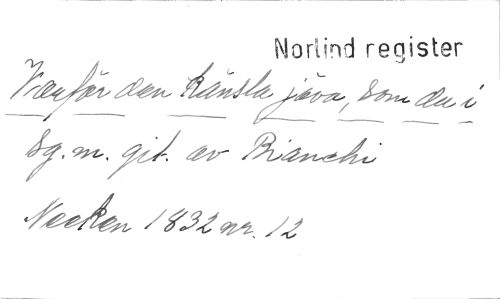 Norlind register
Varför den känsla jäva, som du i
Sg. m. git. av Bianchi
Necken 1832 nr. 12